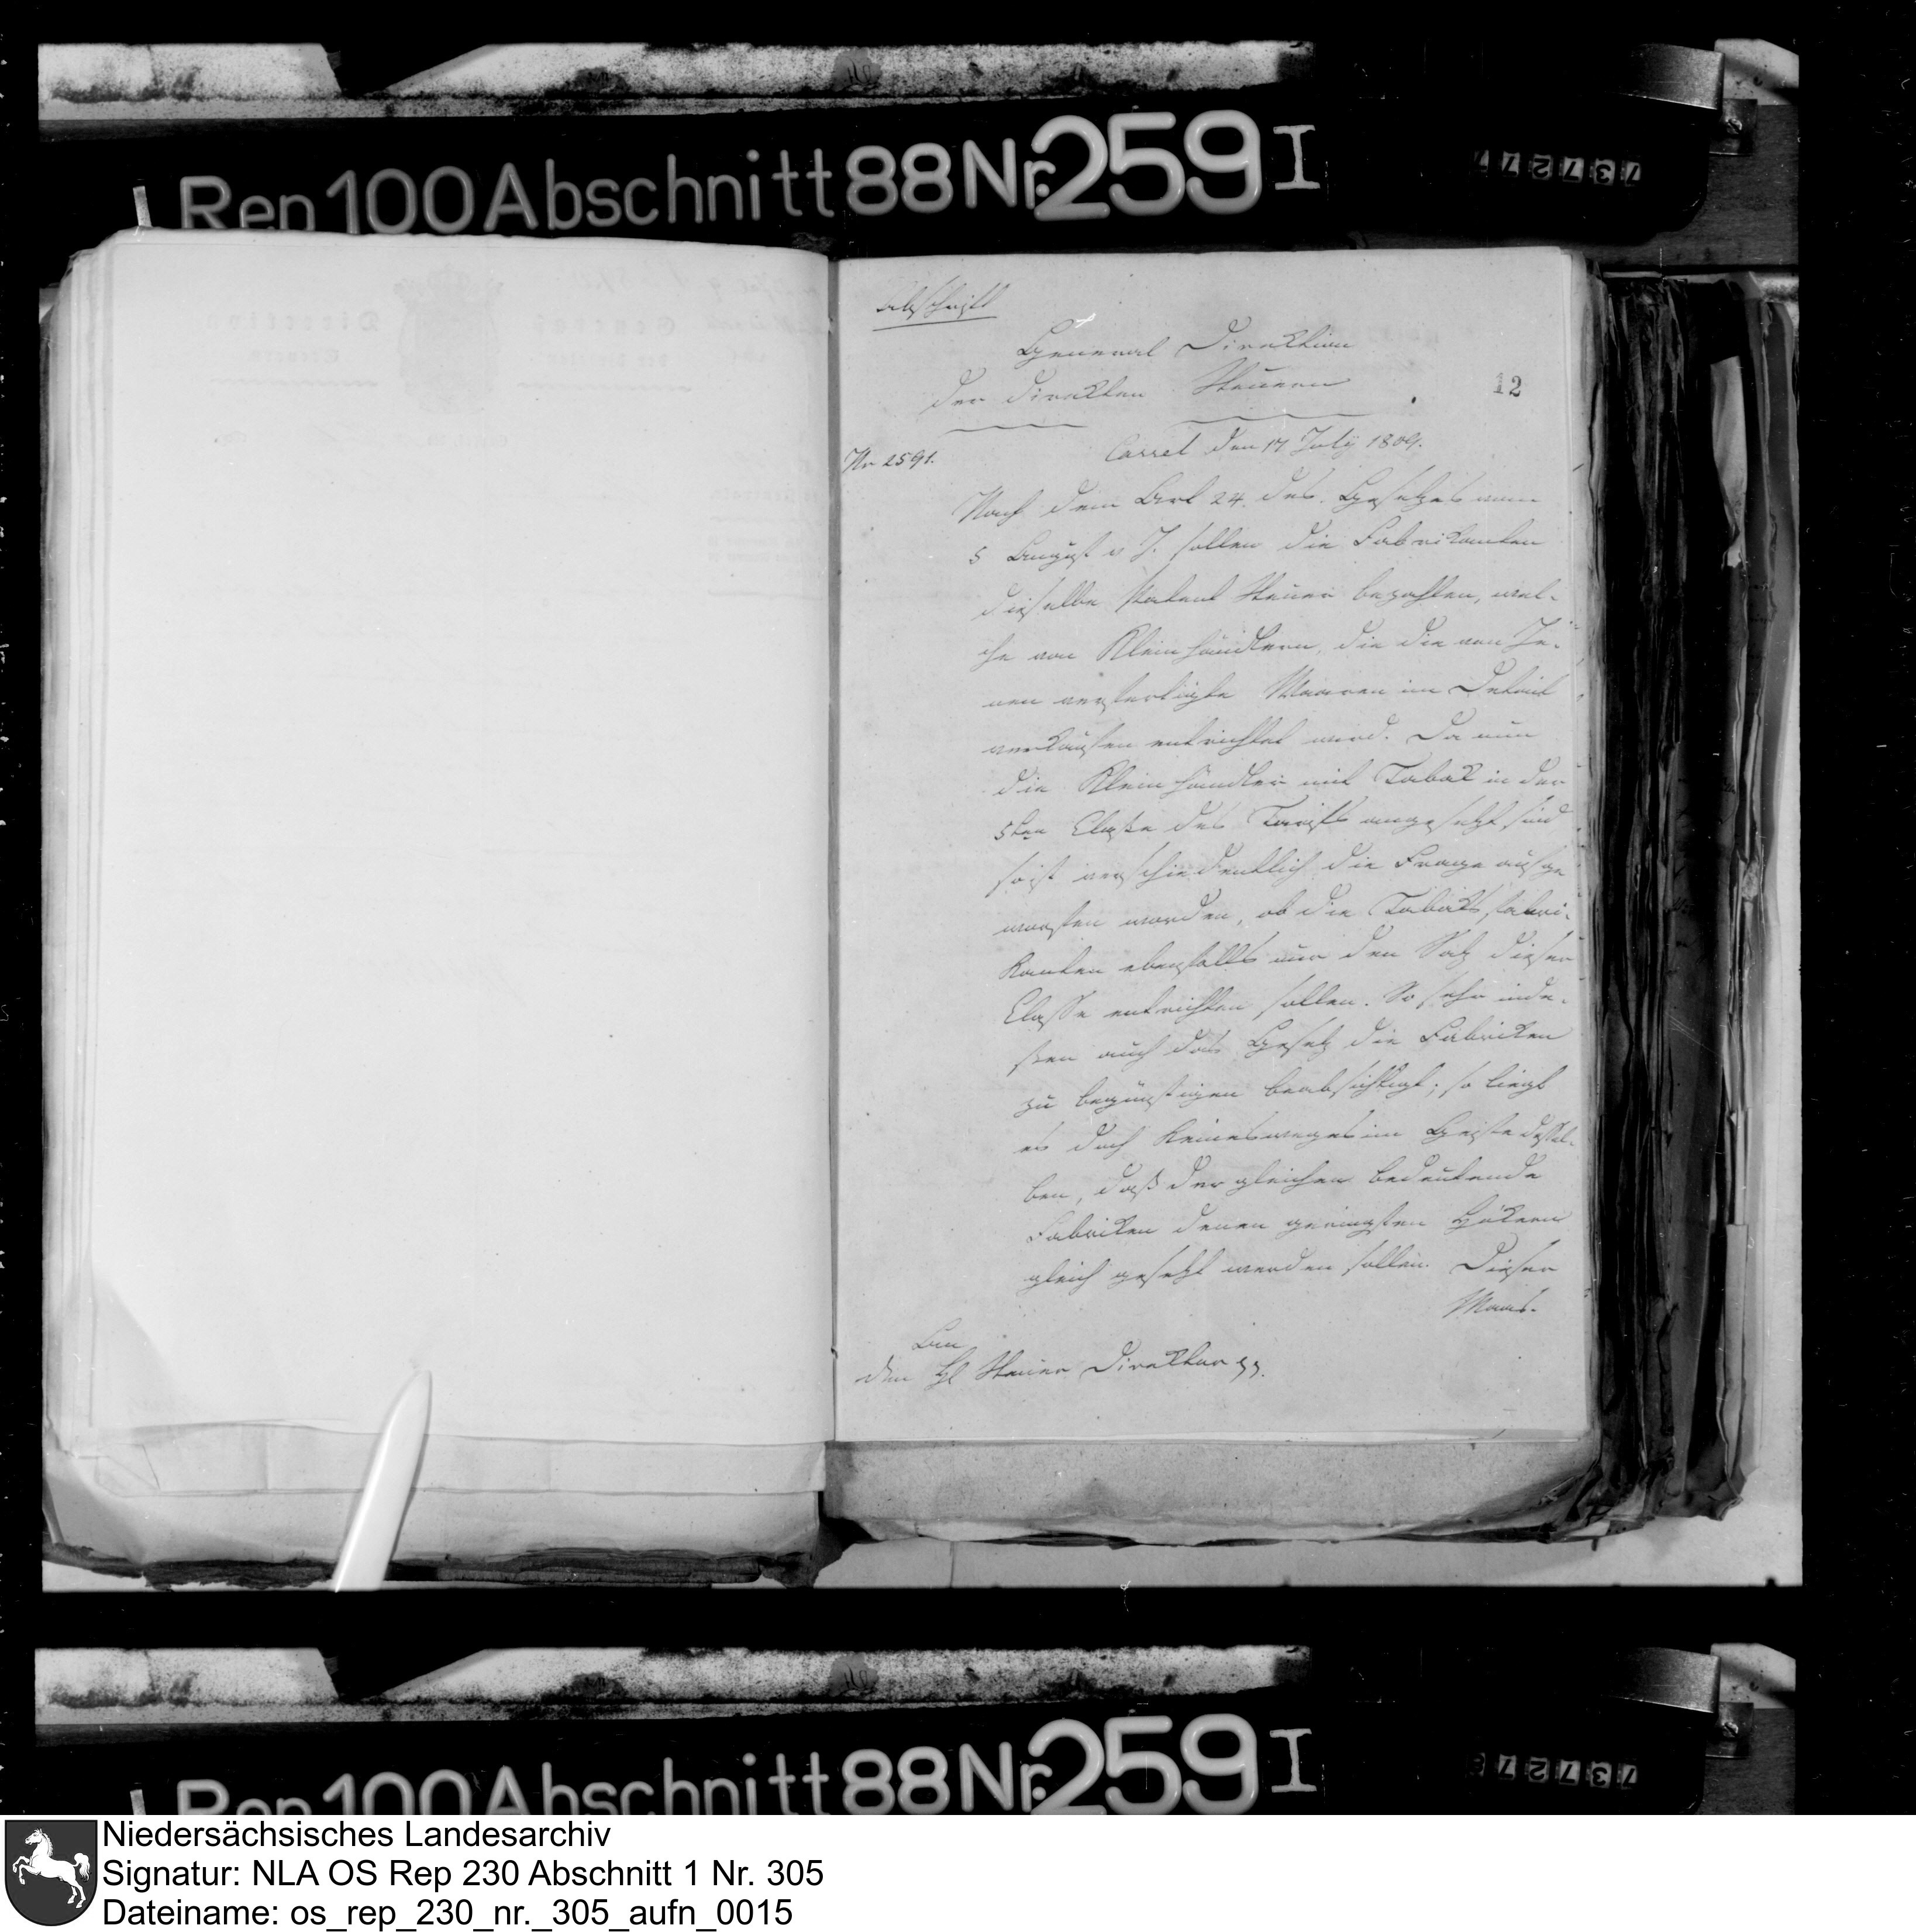 Rep 100 Abschnitt 88 Nr. 259 I
737277
Abschrift
General Direktion
der direkten Steuern
12
Nr 2591.
Cassel den 17 July 1809.
Nach dem Art 24. des Gesetzes vom
5 August v J. sollen die Fabrikanten
dieselbe Patent Steuer bezahlen, wel-
che von Kleinhändlern, die die von Je-
nen verfertigte Waaren im Detail
verkaufen entrichtet wird. Da nun
die Kleinhändler mit Tabak in der
5ten Claße des Tarifs angesetzt sind
so ist verschiedentlich die Frage aufge
worfen worden, ob die Tabaks fabri-
kanten ebenfalls nur den Satz dieser
Classe entrichten sollen. So sehr inde-
ßen auch das Gesetz die Fabriken
zu begünstigen beabsichtigt; so liegt
es doch keineswegs im Geiste dessel-
ben, daß dergleichen bedeutende
Fabriken denen geringsten Hökern
gleich gesetzt werden sollen. Dieser
Maas-
An
den H Steuer Direktor
Rep 100 Abschnitt 88 Nr. 259 I
Niedersächsisches Landesarchiv
Signatur: NLA OS Rep 230 Abschnitt 1 Nr. 305
Dateiname: os_rep_230_nr._305_aufn_0015